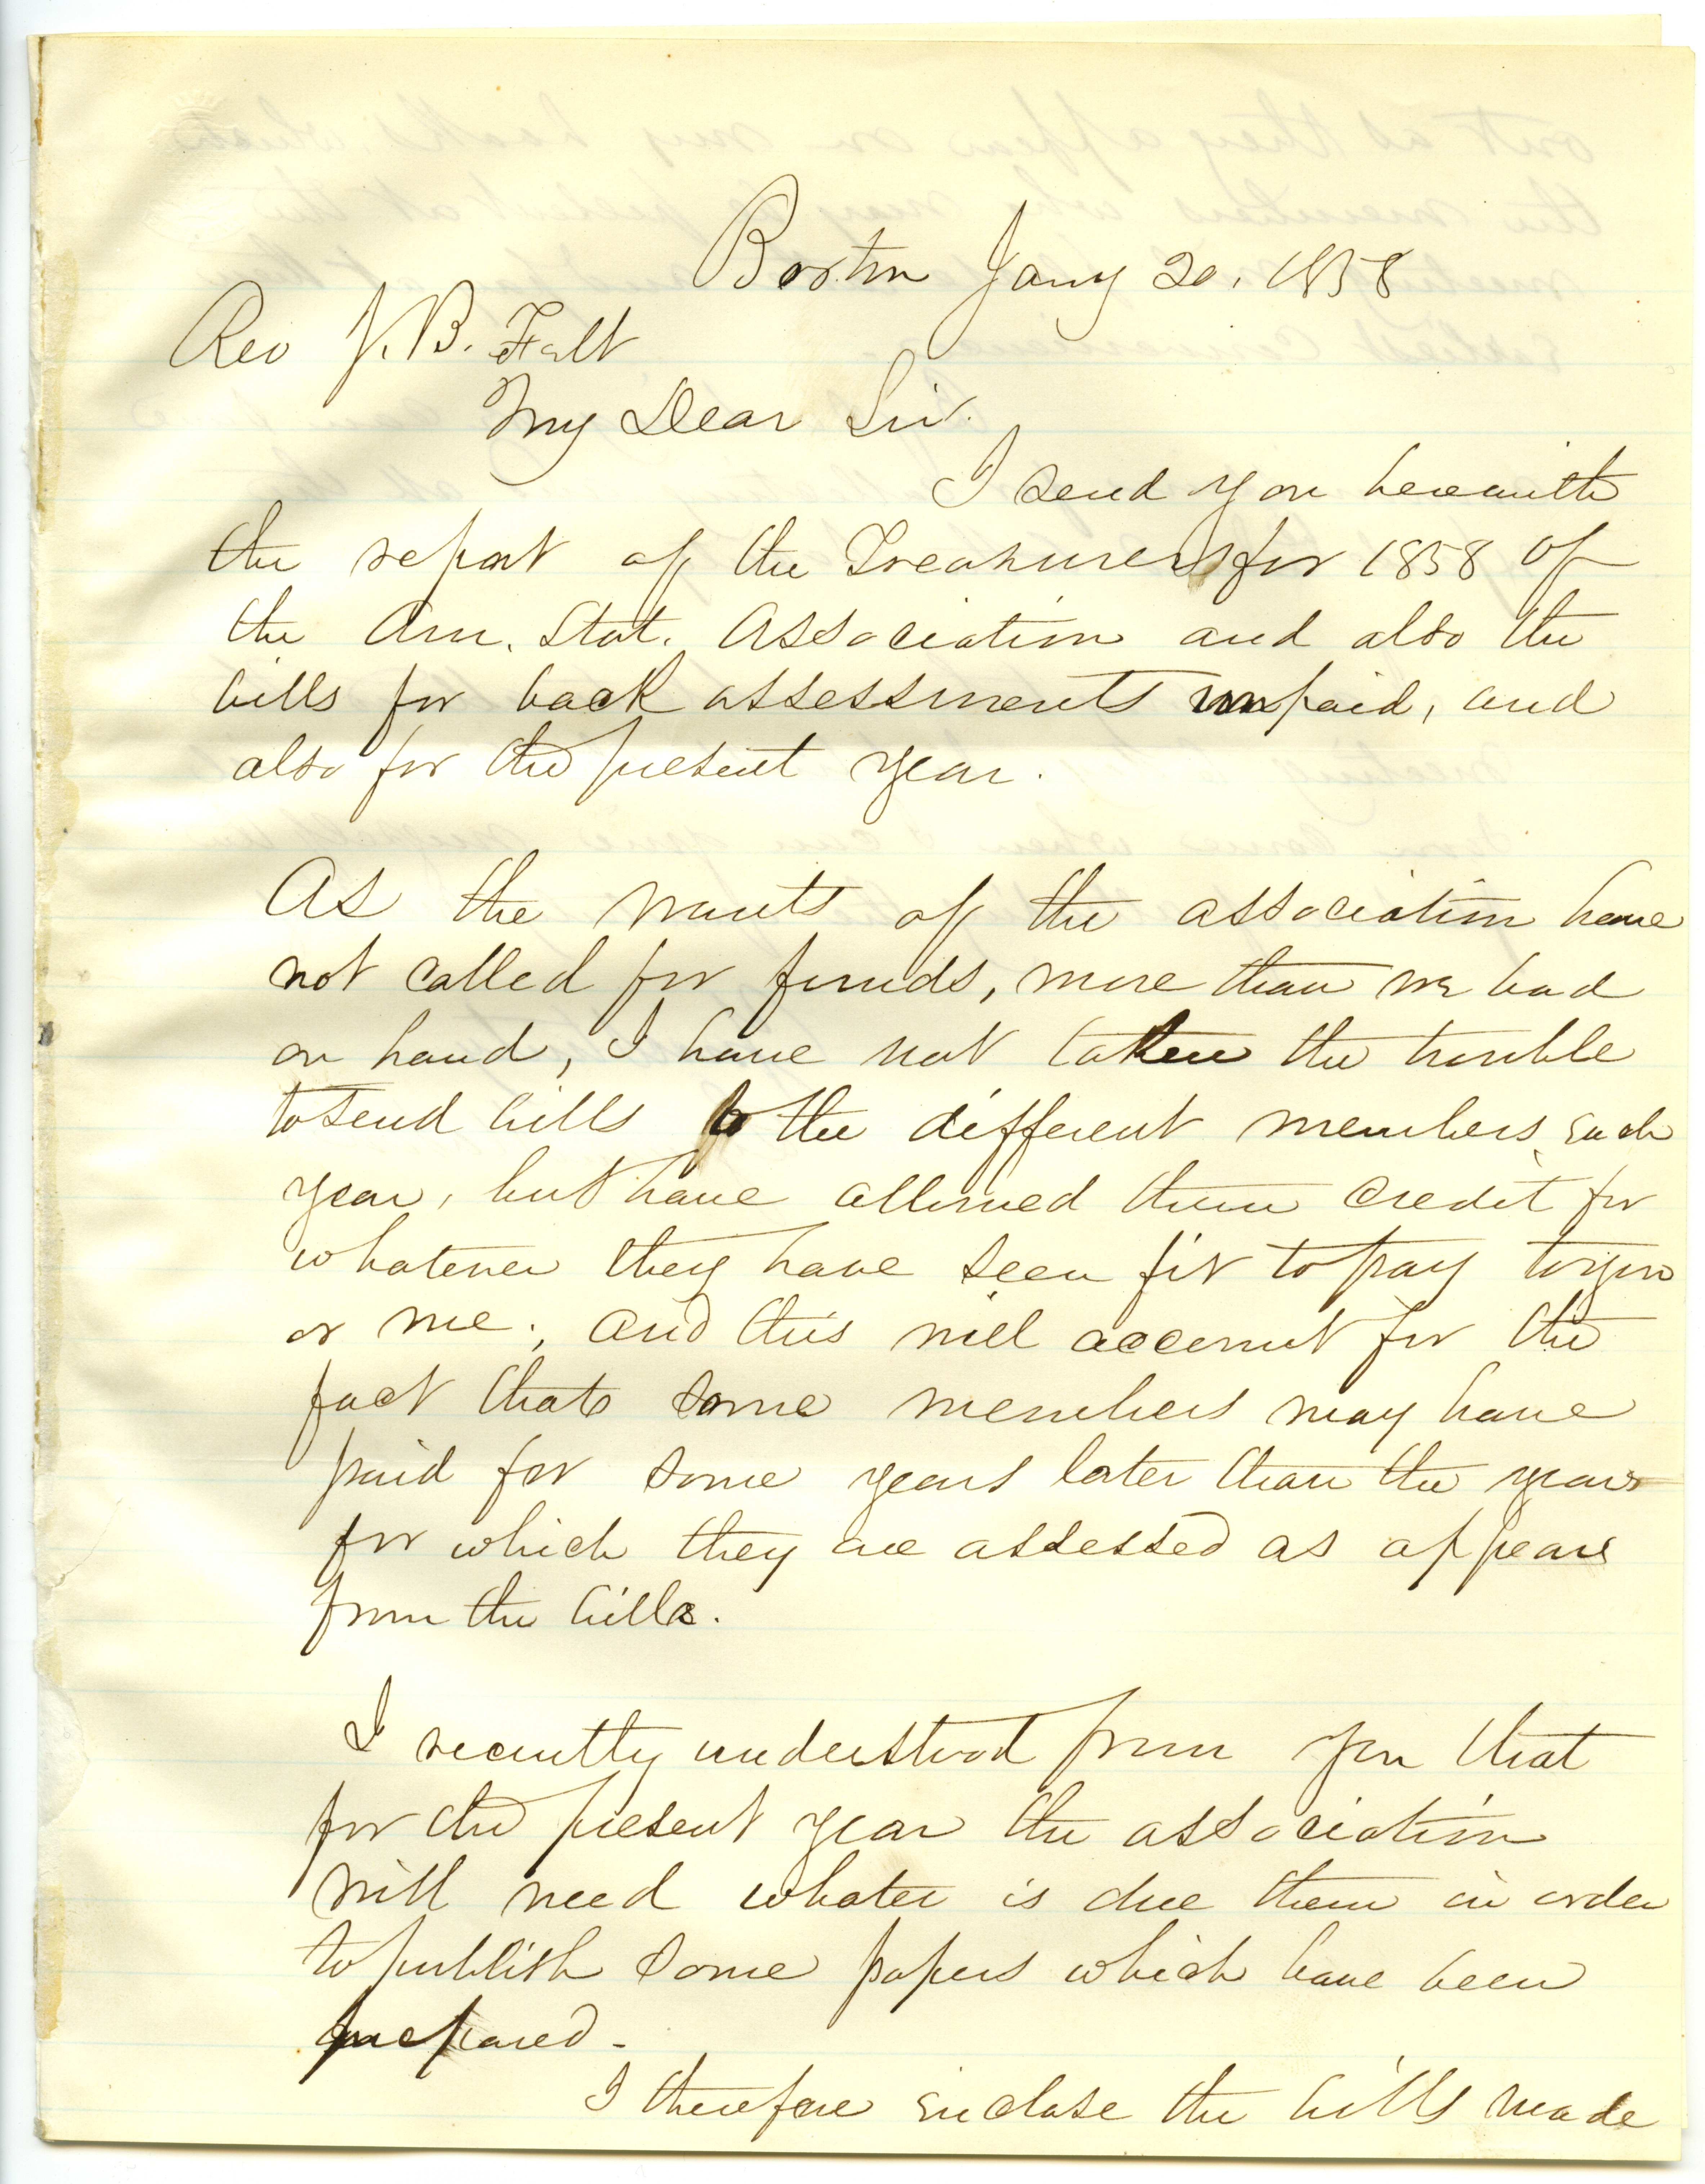 Boston Jany 20, 1858
Rev J. B. Felt
My Dear Sir.
I send you herewith
the report of the Treasurer for 1858 of
the Am. Stat. Association and also the
bills for back assessments unpaid, and
also for the present year.
As the wants of the association have
not called for funds, more than we had
on hand, I have not taken the trouble
to send bills to the different members each
year, but have allowed them credit for
whatever they have seen fit to pay to you
or me; and this will account for the
fact that some members may have
paid for some years later than the years
for which they are assessed as appears
from the bills.
I recently understood from you that
for the present year the association
will need whater is due them in order
to publish some papers which have been
prepared.
I therefore enclose the bills made